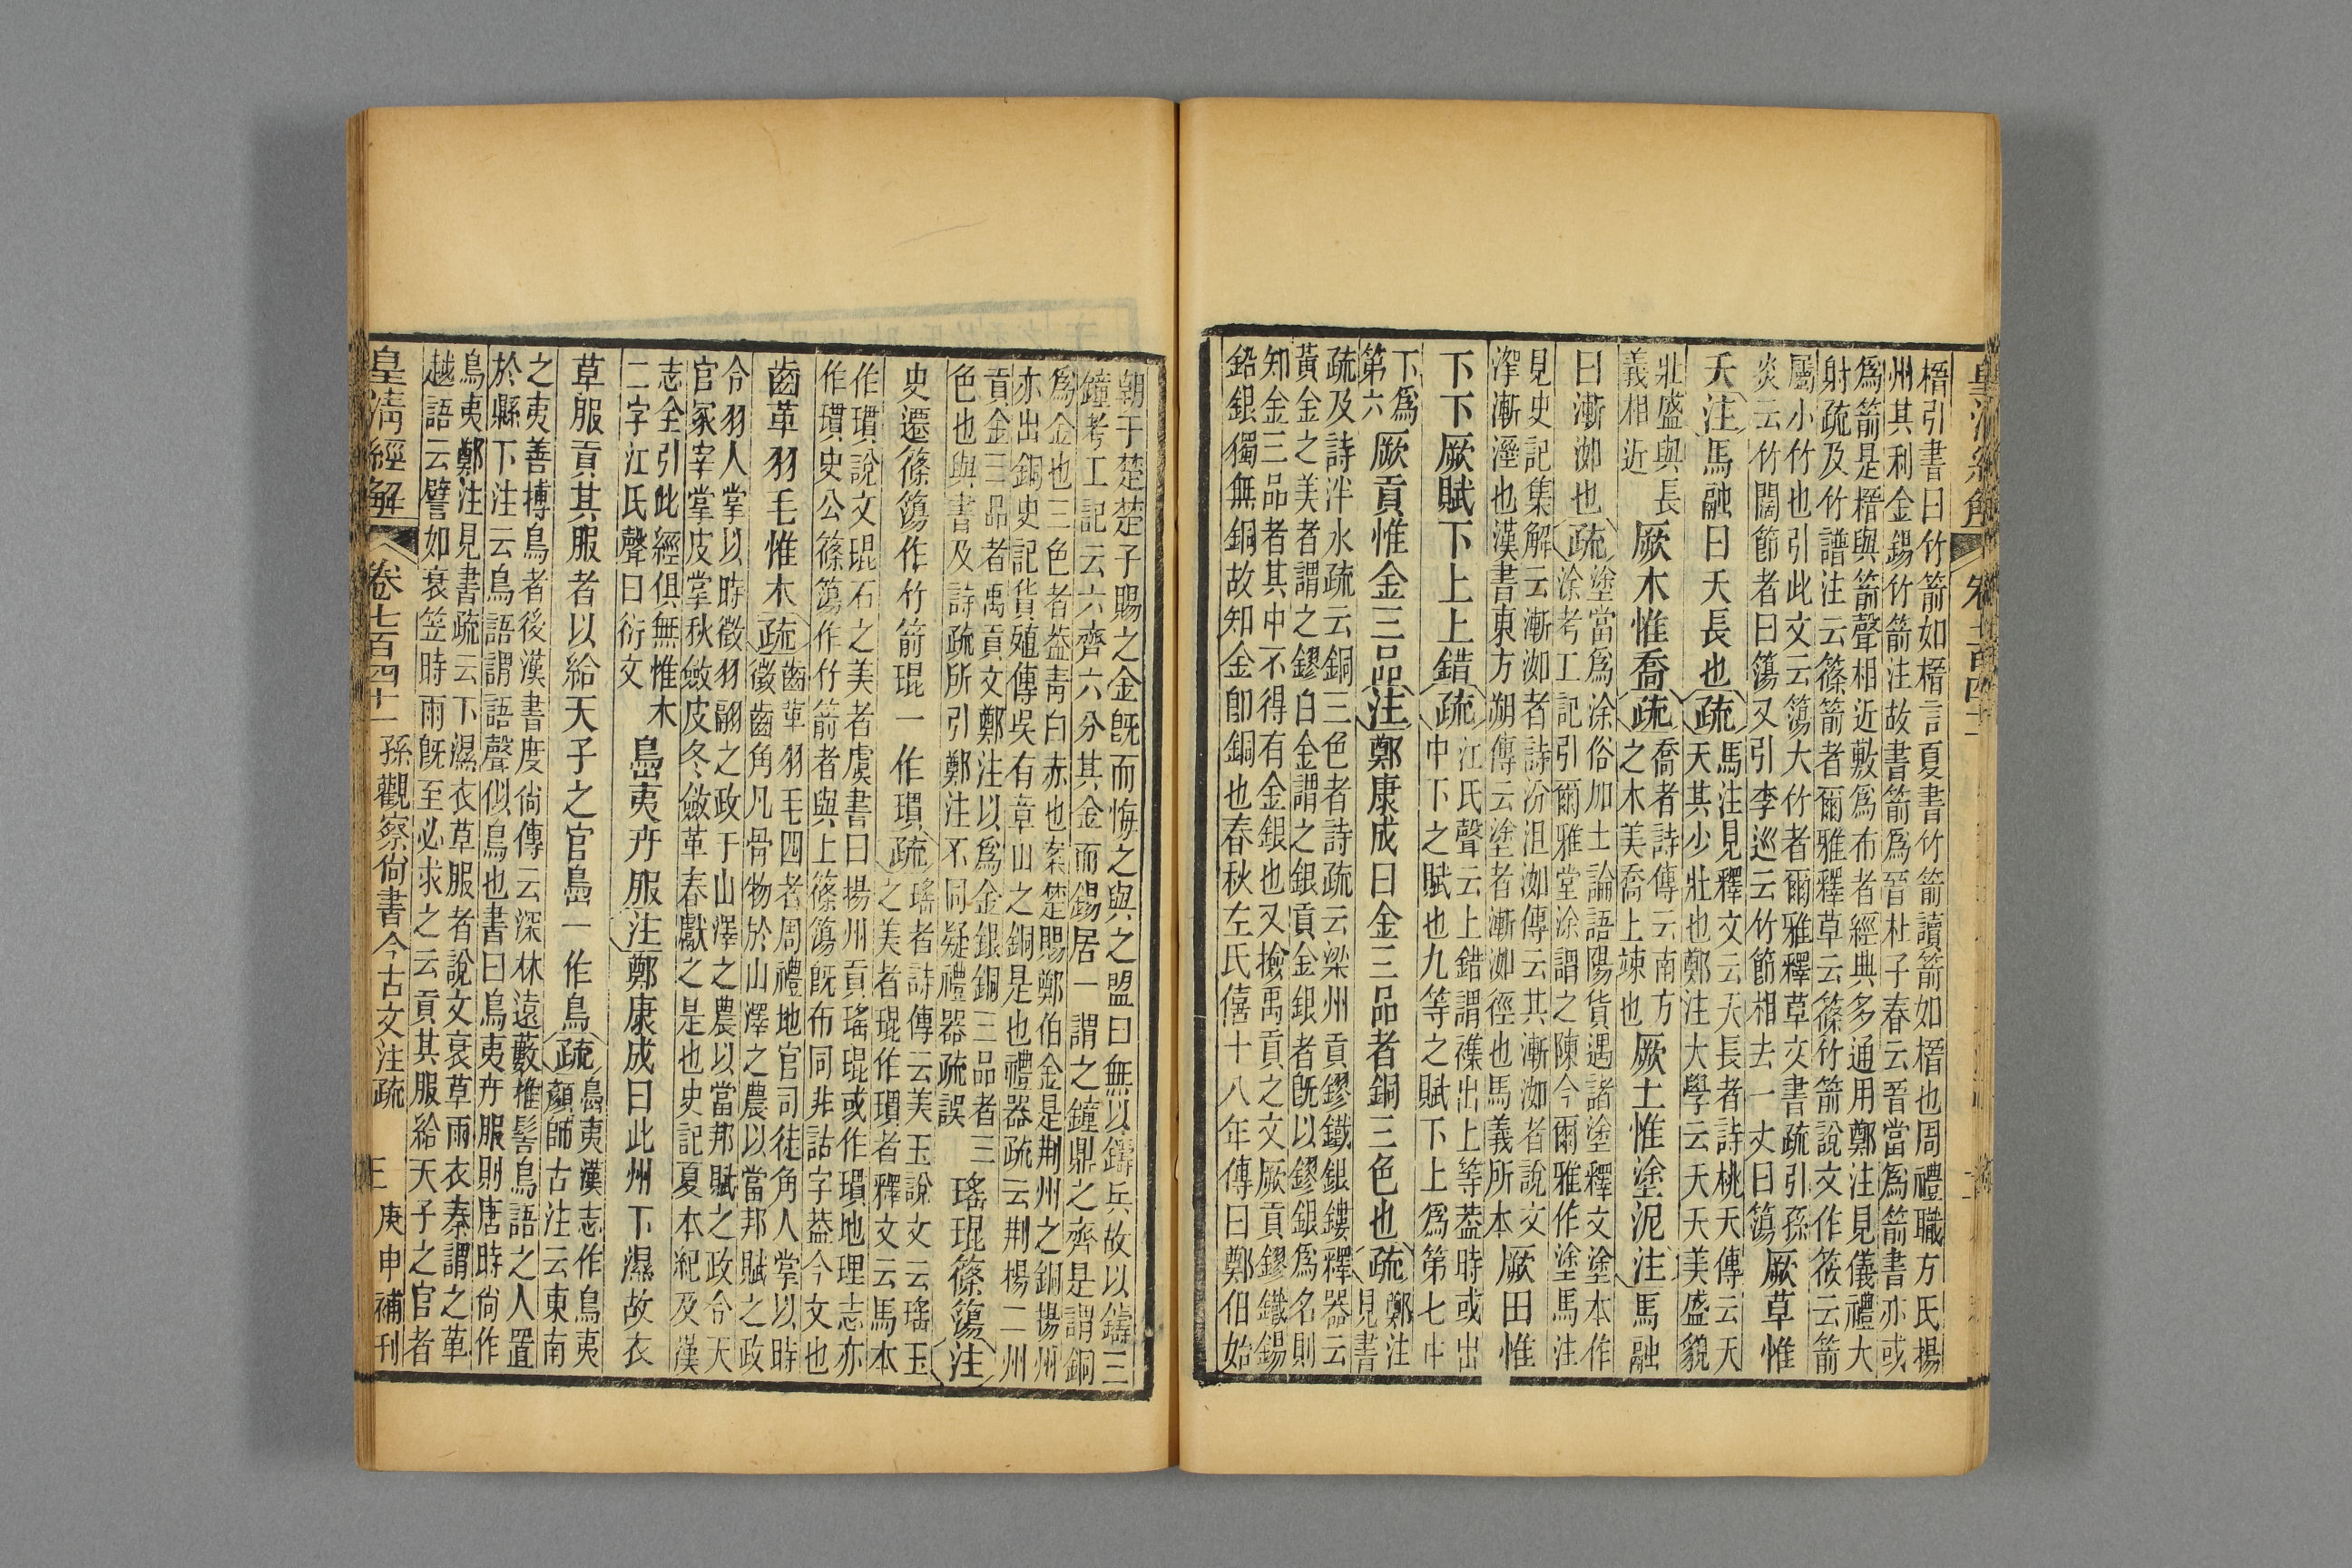 皇清經解
卷七百四十一
楈引書曰竹箭如楈言夏書竹箭讀箭如楈也周禮職方氏楊
州其利金錫竹箭注故書箭爲晉杜子春云晉當爲箭書亦或
爲箭是楈與箭聲相近敷爲布者經典多通用鄭注見儀禮大
射疏及竹譜注云篠箭者爾雅釋草云篠竹箭說文作筱云箭
屬小竹也引此文云簜大竹者爾雅釋草文書疏引孫
炎云竹闊節者曰簜又引李巡云竹節相去一丈曰簜
厥草惟
夭注馬融曰夭長也疏
馬注見釋文云夭夭長者詩桃夭傳云夭
夭其少壯也鄭注大學云夭夭美盛貌
壯盛與長
義相近
厥木惟喬疏
喬者詩傳云南方
之木美喬上竦也
厥土惟塗泥注馬融
曰漸洳也疏
塗當爲涂俗加土論語陽貨遇諸塗釋文塗本作
涂考工記引爾雅堂涂謂之陳今爾雅作塗馬注
見史記集解云漸洳者詩汾沮洳傳云其漸洳者說文
漥漸溼也漢書東方朔傳云塗者漸洳徑也馬義所本
厥田惟
下下厥賦下上上錯疏
江氏聲云上錯謂襍出上等葢時或出
中下之賦也九等之賦下上爲第七中
下爲
第六
厥貢惟金三品注鄭康成曰金三品者銅三色也疏
鄭注
見書
疏及詩泮水疏云銅三色者詩疏云梁州貢鏐鐵銀鏤釋器云
黃金之美者謂之鏐白金謂之銀貢金銀者旣以鏐銀爲名則
知金三品者其中不得有金銀也又撿禹貢之文厥貢鏐鐵錫
鉛銀獨無銅故知金卽銅也春秋左氏僖十八年傳曰鄭伯始
朝于楚楚子賜之金旣而悔之與之盟曰無以鑄兵故以鑄三
鐘考工記云六齊六分其金而錫居一謂之鐘鼎之齊是謂銅
爲金也三色者葢靑白赤也案楚賜鄭伯金是荆州之銅揚州
亦出銅史記貨殖傳吳有章山之銅是也禮器疏云荆楊二州
貢金三品者禹貢文鄭注以爲金銀銅三品者三
色也與書及詩疏所引鄭注不同疑禮器疏誤
瑤琨篠簜注
史遷篠簜作竹箭琨一作瑻疏
瑤者詩傳云美玉說文云瑤玉
之美者琨作瑻者釋文云馬本
作瑻說文琨石之美者虞書曰揚州貢瑤琨或作瑻地理志亦
作瑻史公篠簜作竹箭者與上篠簜旣布同非詁字葢今文也
齒革羽毛惟木疏
齒革羽毛四者周禮地官司徒角人掌以時
徵齒角凡骨物於山澤之農以當邦賦之政
令羽人掌以時徵羽翮之政于山澤之農以當邦賦之政令天
官冢宰掌皮掌秋斂皮冬斂革春獻之是也史記夏本紀及漢
志全引此經俱無惟木
二字江氏聲曰衍文
島夷卉服注鄭康成曰此州下濕故衣
草服貢其服者以給天子之官島一作鳥疏
島夷漢志作鳥夷
顏師古注云東南
之夷善摶鳥者後漢書度尙傳云深林遠藪椎髻鳥語之人置
於縣下注云鳥語謂語聲似鳥也書曰鳥夷卉服則唐時尙作
鳥夷鄭注見書疏云下濕衣草服者說文衰草雨衣秦謂之萆
越語云譬如衰笠時雨旣至必求之云貢其服給天子之官者
皇淸經解
卷七百四十一
孫觀察尙書今古文注疏
三
庚申補刊